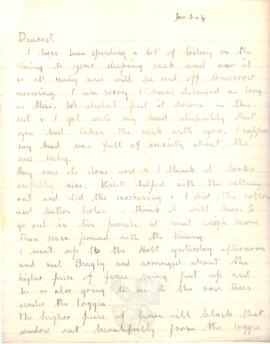 Jan 3rd 4
Dearest
I have been spending a lot of today on the
lining to your sleeping sack and now it
is all ready and will be sent off tomorrow
morning. I am sorry I have delayed so long
as this. We didn't put it down in the
list & I got into my head stupidly that
you had taken the sack with you. I suppose
my head was full of anxiety about the
new baby.
Any way its done now & I think it looks
awfully nice. helped with the cutting
out and did the machining & I did the cotton
and button holes. I think it will have to
go out in two parcels. it must weigh more
than pound with the lining.
I went up to the Holt yesterday afternoon
and met and arranged about the
higher piece of fence being put up and
he is also going to see to the rose trees
under the loggia.
The higher piece of fence will that
window out beautifully from the loggia